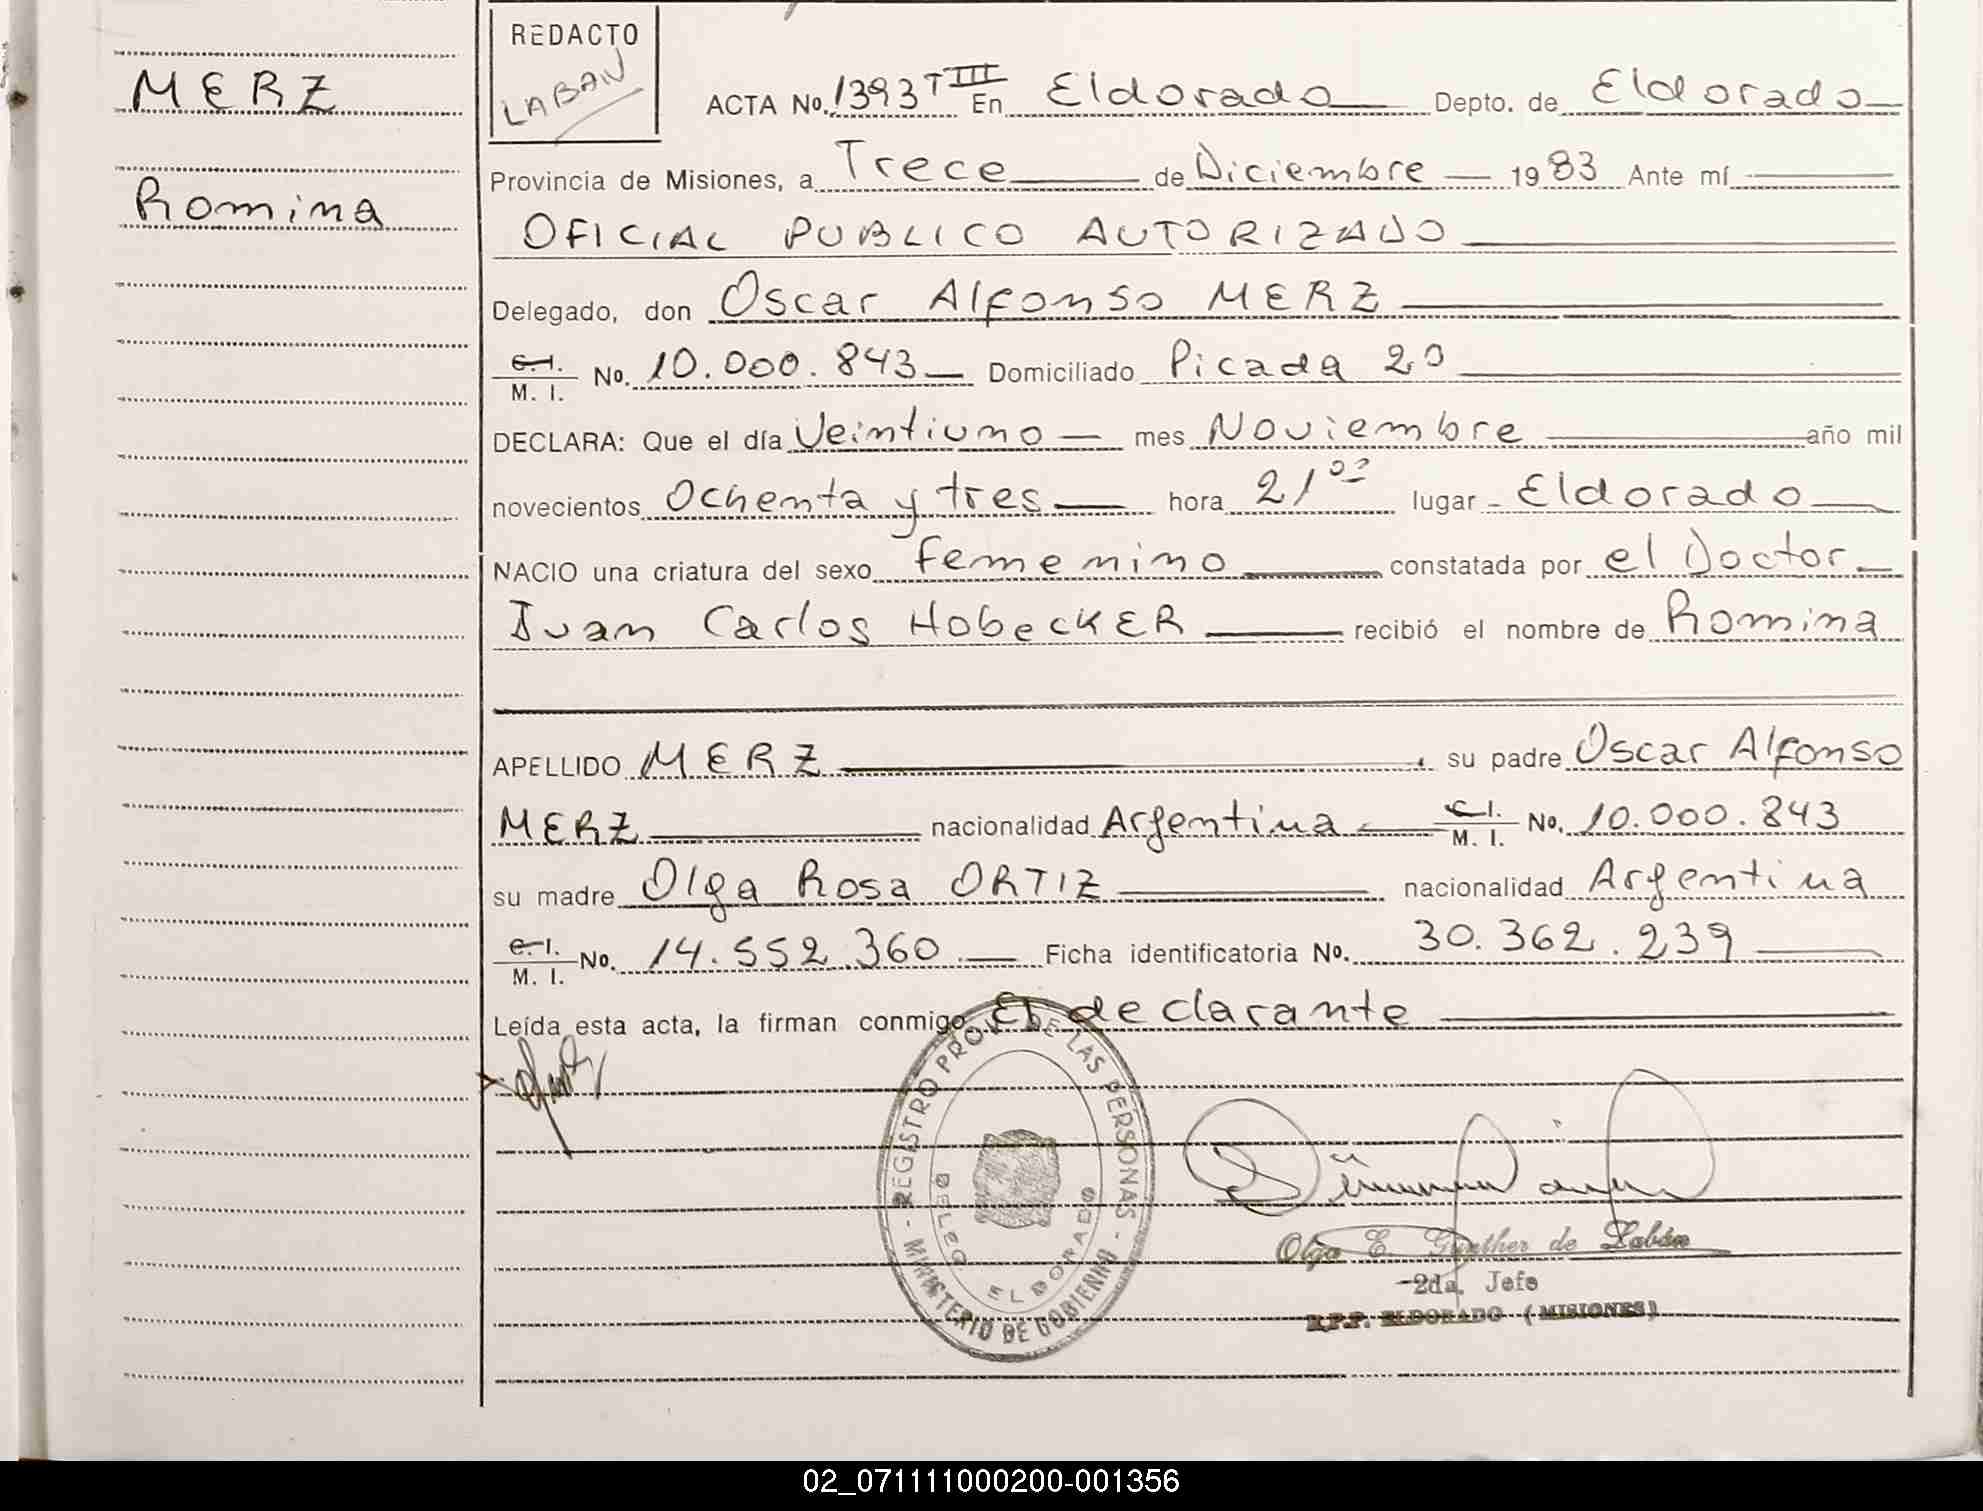 MERZ
Romina
REDACTO
LABAN
ACTA No. 1393 T III En Eldorado Depto. de Eldorado
Provincia de Misiones, a Trece de Diciembre 1983 Ante mí
OFICIAL PUBLICO AUTORIZADO
Delegado, don Oscar Alfonso MERZ
C. I. / M. I. No. 10.000.843 Domiciliado Picada 20
DECLARA: Que el día Veintiuno mes Noviembre año mil
novecientos Ochenta y tres hora 21 00 lugar Eldorado
NACIO una criatura del sexo femenino constatada por el Doctor
Juan Carlos HobecKER recibió el nombre de Romina
APELLIDO MERZ, su padre Oscar Alfonso
MERZ nacionalidad Argentina C. I. / M. I. No. 10.000.843
su madre Olga Rosa ORTIZ nacionalidad Argentina
C. I. / M. I. No. 14.552.360 Ficha identificatoria No. 30.362.239
Leída esta acta, la firman conmigo El declarante
REGISTRO PROV. DE LAS PERSONAS - MINISTERIO DE GOBIERNO -
DELEG. ELDORADO
Olga E. Gunther de Labán
2da. Jefe
R.P.P. ELDORADO (MISIONES)
02_071111000200-001356